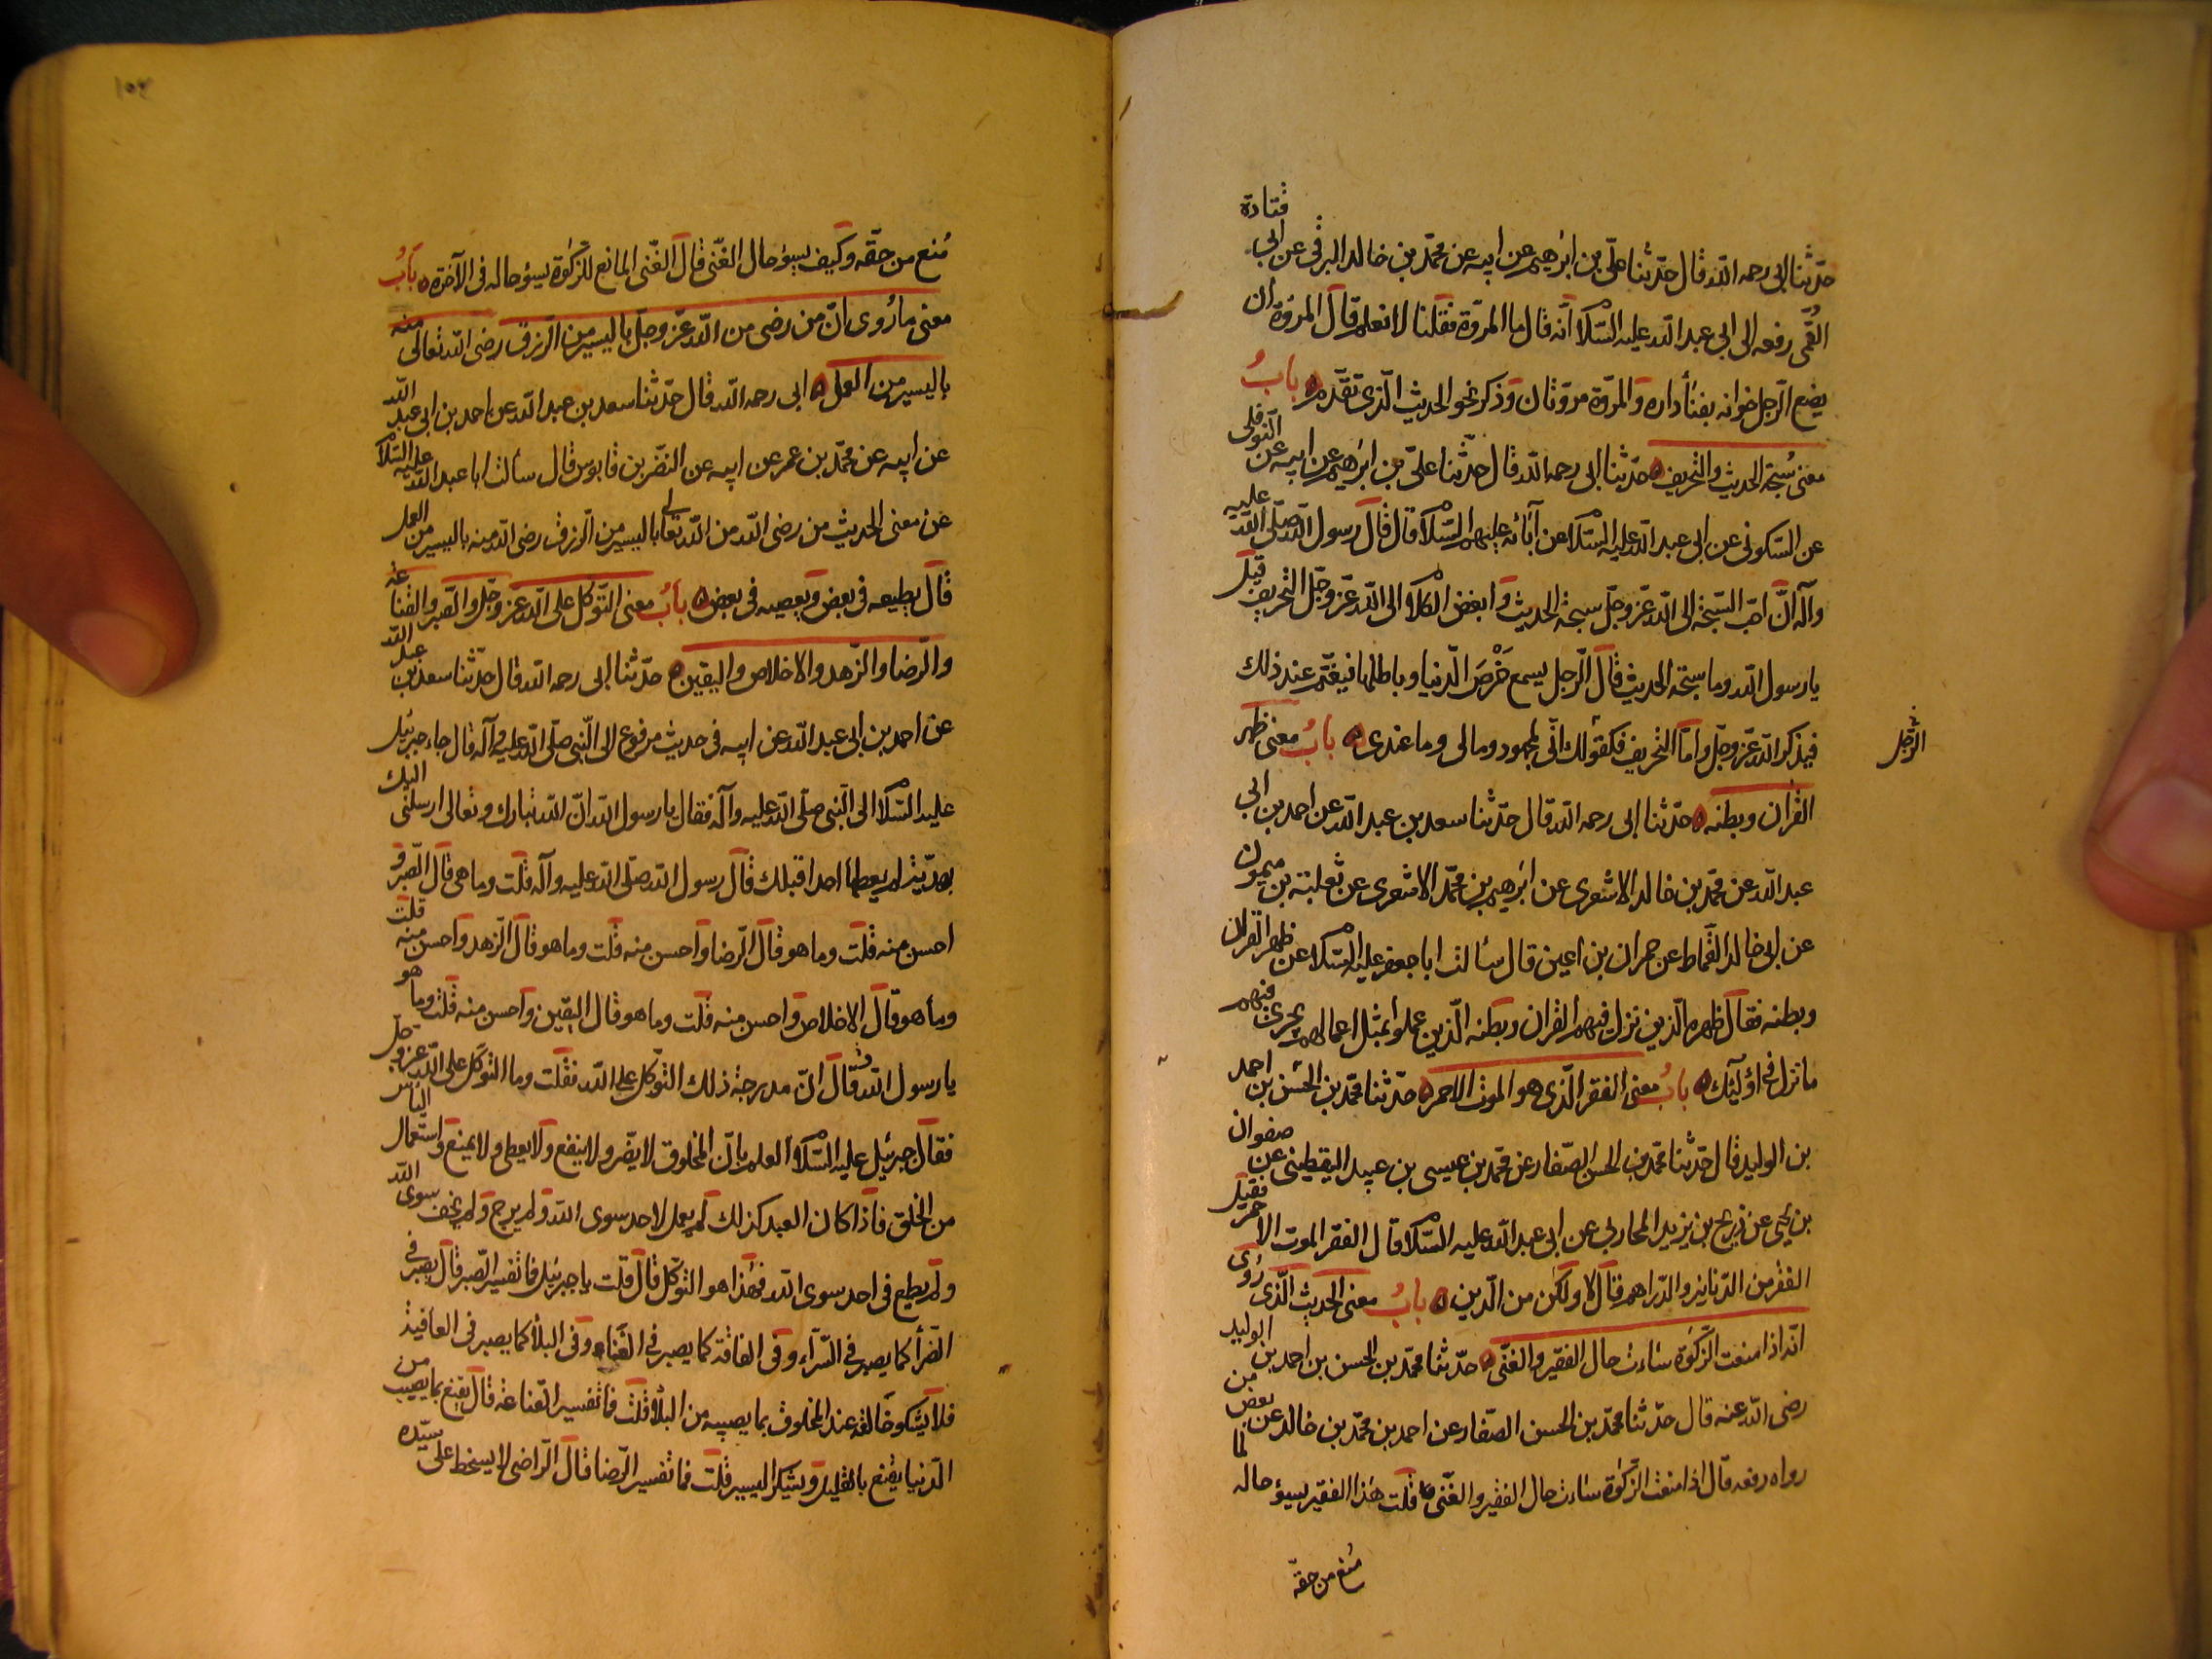 حدّثنا ابى رحمه الله قال حدّثنا علىّ بن ابرهيم عن ابيه عن محمّد بن خالد البرقى عن ابى قتادة
القمّى رفعه الى ابى عبد الله عليه السّلام انّه قال ما المروّة فقلنا لا نعلم قال المروّة ان
يضع الرّجل خوانه بفناء داره والمروّة مروّتان وذكر نحو الحديث الّذى تقدّم باب
معنى سُبحة الحديث والتحريف حدّثنا ابى رحمه الله قال حدّثنا علىّ بن ابرهيم عن ابيه عن النّوفلى
عن السّكونى عن ابى عبد الله عليه السّلام عن آبائه عليهم السّلام قال قال رسول الله صلّى الله عليه
وآله انّ احبّ السّبحة الى الله عزّ وجلّ سبحة الحديث وابغض الكلام الى الله عزّ وجلّ التحريف قيل
يا رسول الله وما سبحة الحديث قال الرّجل يسمع حَرْصَ الدّنيا وباطلها فيغتمّ عند ذلك
فيذكر الله عزّ وجلّ وامّا التحريف فكقولك انّى لمجهود ومالى وما عندى باب معنى ظهر
الرّجل
القرآن وبطنه حدّثنا ابى رحمه الله قال حدّثنا سعد بن عبد الله عن احمد بن ابى
عبد الله عن محمّد بن خالد الاشعرى عن ابرهيم بن محمّد الاشعرى عن ثعلبة بن ميمون
عن ابى خالد القماط عن حمران بن اعين قال سألت ابا جعفر عليه السّلام عن ظهر القران
وبطنه فقال ظهره الّذين نزل فيهم القران وبطنه الّذين عملوا بمثل اعمالهم يجرى فيهم
ما نزل فى اولئك باب معنى الفقر الّذى هو الموت الاحمر حدّثنا محمّد بن الحسن بن احمد
بن الوليد قال حدّثنا محمّد بن الحسن الصّفار عن محمّد بن عيسى بن عبيد اليقطينى عن صفوان
بن يحيى عن ذريح بن يزيد المحاربى عن ابى عبد الله عليه السّلام قال الفقر الموت الاحمر فقيل
الفقر من الدّنانير والدّراهم قال لا ولكن من الدّين باب معنى الحديث الّذى رُوى
انّه اذا منعت الزّكوة ساءت حال الفقير والغنّى حدّثنا محمّد بن الحسن بن احمد بن الوليد
رضى الله عنه قال حدّثنا محمّد بن الحسن الصّفار عن احمد بن محمّد بن خالد عن بعض من
رواه رفعه قال اذا منعت الزّكوة ساءت حال الفقير والغنّى قلت هذا الفقير يسوء حاله لما
مُنع من حقّه
١٠٤
مُنع من حقّه وكيف يسوء حال الغنّى قال الغنّى المانع للزكوة يسوء حاله فى الآخرة باب
معنى ما رُوى انّ من رضى من الله عزّ وجلّ باليسير من الرّزق رضى الله تعالى منه
باليسير من العمل ابى رحمه الله قال حدّثنا سعد بن عبد الله عن احمد بن ابى عبد الله
عن ابيه عن محمّد بن عمر عن ابيه عن النضر بن قابوس قال سألت ابا عبد الله عليه السّلام
عن معنى الحديث من رضى الله من الله تعالى باليسير من الرّزق رضى الله منه باليسير من العمل
قال يطيعه فى بعض ويعصيه فى بعض باب معنى التّوكل على الله عزّ وجلّ والصّبر والقناعة
والرّضا والزّهد والاخلاص واليقين حدّثنا ابى رحمه الله قال حدّثنا سعد بن عبد الله
عن احمد بن ابى عبد الله عن ابيه فى حديث مرفوع الى النّبى صلّى الله عليه وآله قال جاء جبرئيل
عليه السّلام الى النّبى صلّى الله عليه وآله فقال يا رسول الله انّ الله تبارك وتعالى ارسلنى اليك
بهديّة لم يعطها احدا قبلك قال رسول الله صلّى الله عليه وآله قلت وما هى قال الصّبر و
احسن منه قلت وما هو قال الرّضا واحسن منه قلت وما هو قال الزّهد واحسن منه قلت
وما هو قال الاخلاص واحسن منه قلت وما هو قال اليقين واحسن منه قلت وما هو
يا رسول الله قال انّ مدرجة ذلك التّوكّل على الله فقلت وما التّوكّل على الله عزّ وجلّ
فقال جبرئيل عليه السّلام العلم بانّ المخلوق لا يضّر ولا ينفع ولا يعطى ولا يمنع واستعمال اليأس
من الخلق فاذا كان العبد كذلك لم يعمل لاحد سوى الله ولم يرج ولم يخف سوى الله
ولم يطمع فى احد سوى الله فهذا هو التوكّل قال قلت يا جبرئيل فما تفسير الصّبر قال يصبر فى
الضّرّاء كما يصبر فى السّرّاء وفى الفاقة كما يصبر فى الغناء وفى البلاء كما يصبر فى العافية
فلا يشكو خالقه عند المخلوق بما يصيبه من البلاء قلت فما تفسير القناعة قال يقنع بما يصيب من
الدّنيا يقنع بالقليل ويشكر اليسير قلت فما تفسير الرّضا قال الرّاضى لا يسخط على سيّده